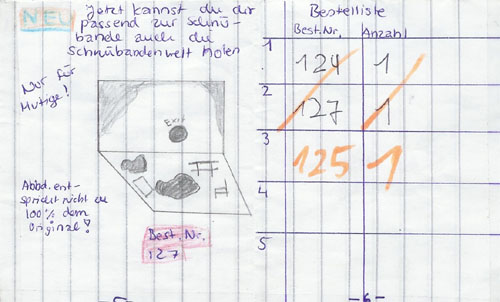 NEU
Jetzt kannst du dir
passend zur schnü-
bande auch die
schnübandenwelt holen
Nur für
Mutige!
Exit
Abbd. ent-
spricht nicht zu
100% dem
Original!
Best. Nr.
127
Bestelliste
Best.Nr. Anzahl
1 124 1
2 127 1
3 125 1
4
5
-6-